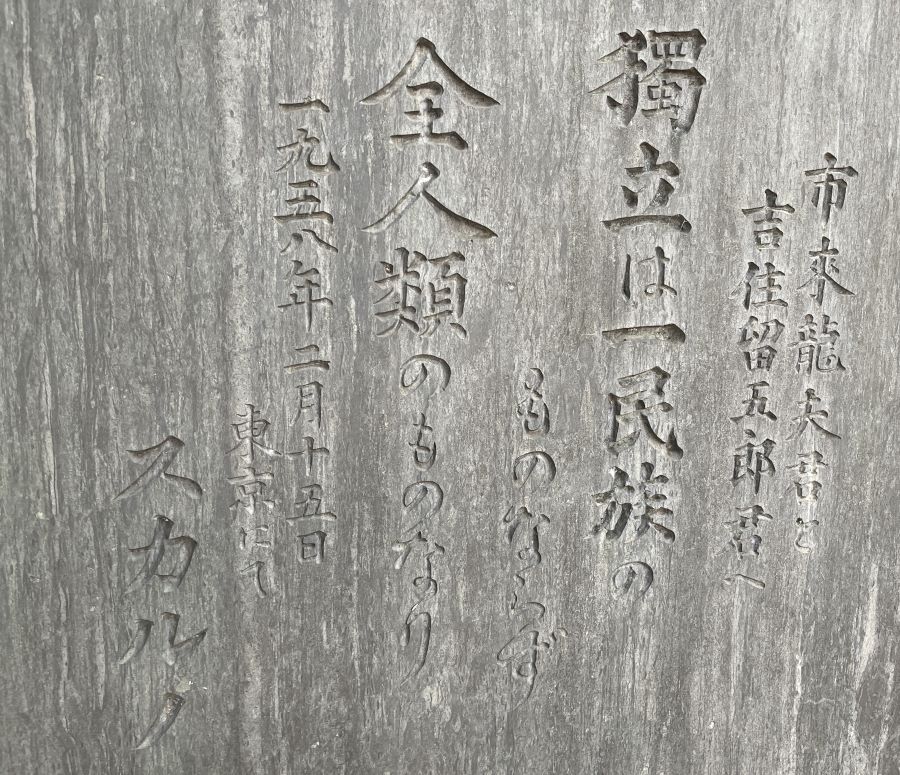 市來龍夫君と
吉住留五郎君へ
獨立は一民族の
ものならず
全人類のものなり
一九五八年二月十五日
東京にて
スカルノ